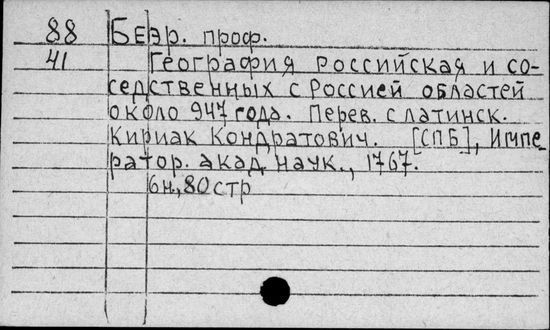 88 Беэр. проф.
41 География российская и со-
седственных с Россией областей
около 947 года. Перев. с латинск.
Кириак Кондратович. [СПБ], Импе-
ратор. акад. наук., 1767.
6н., 80 стр